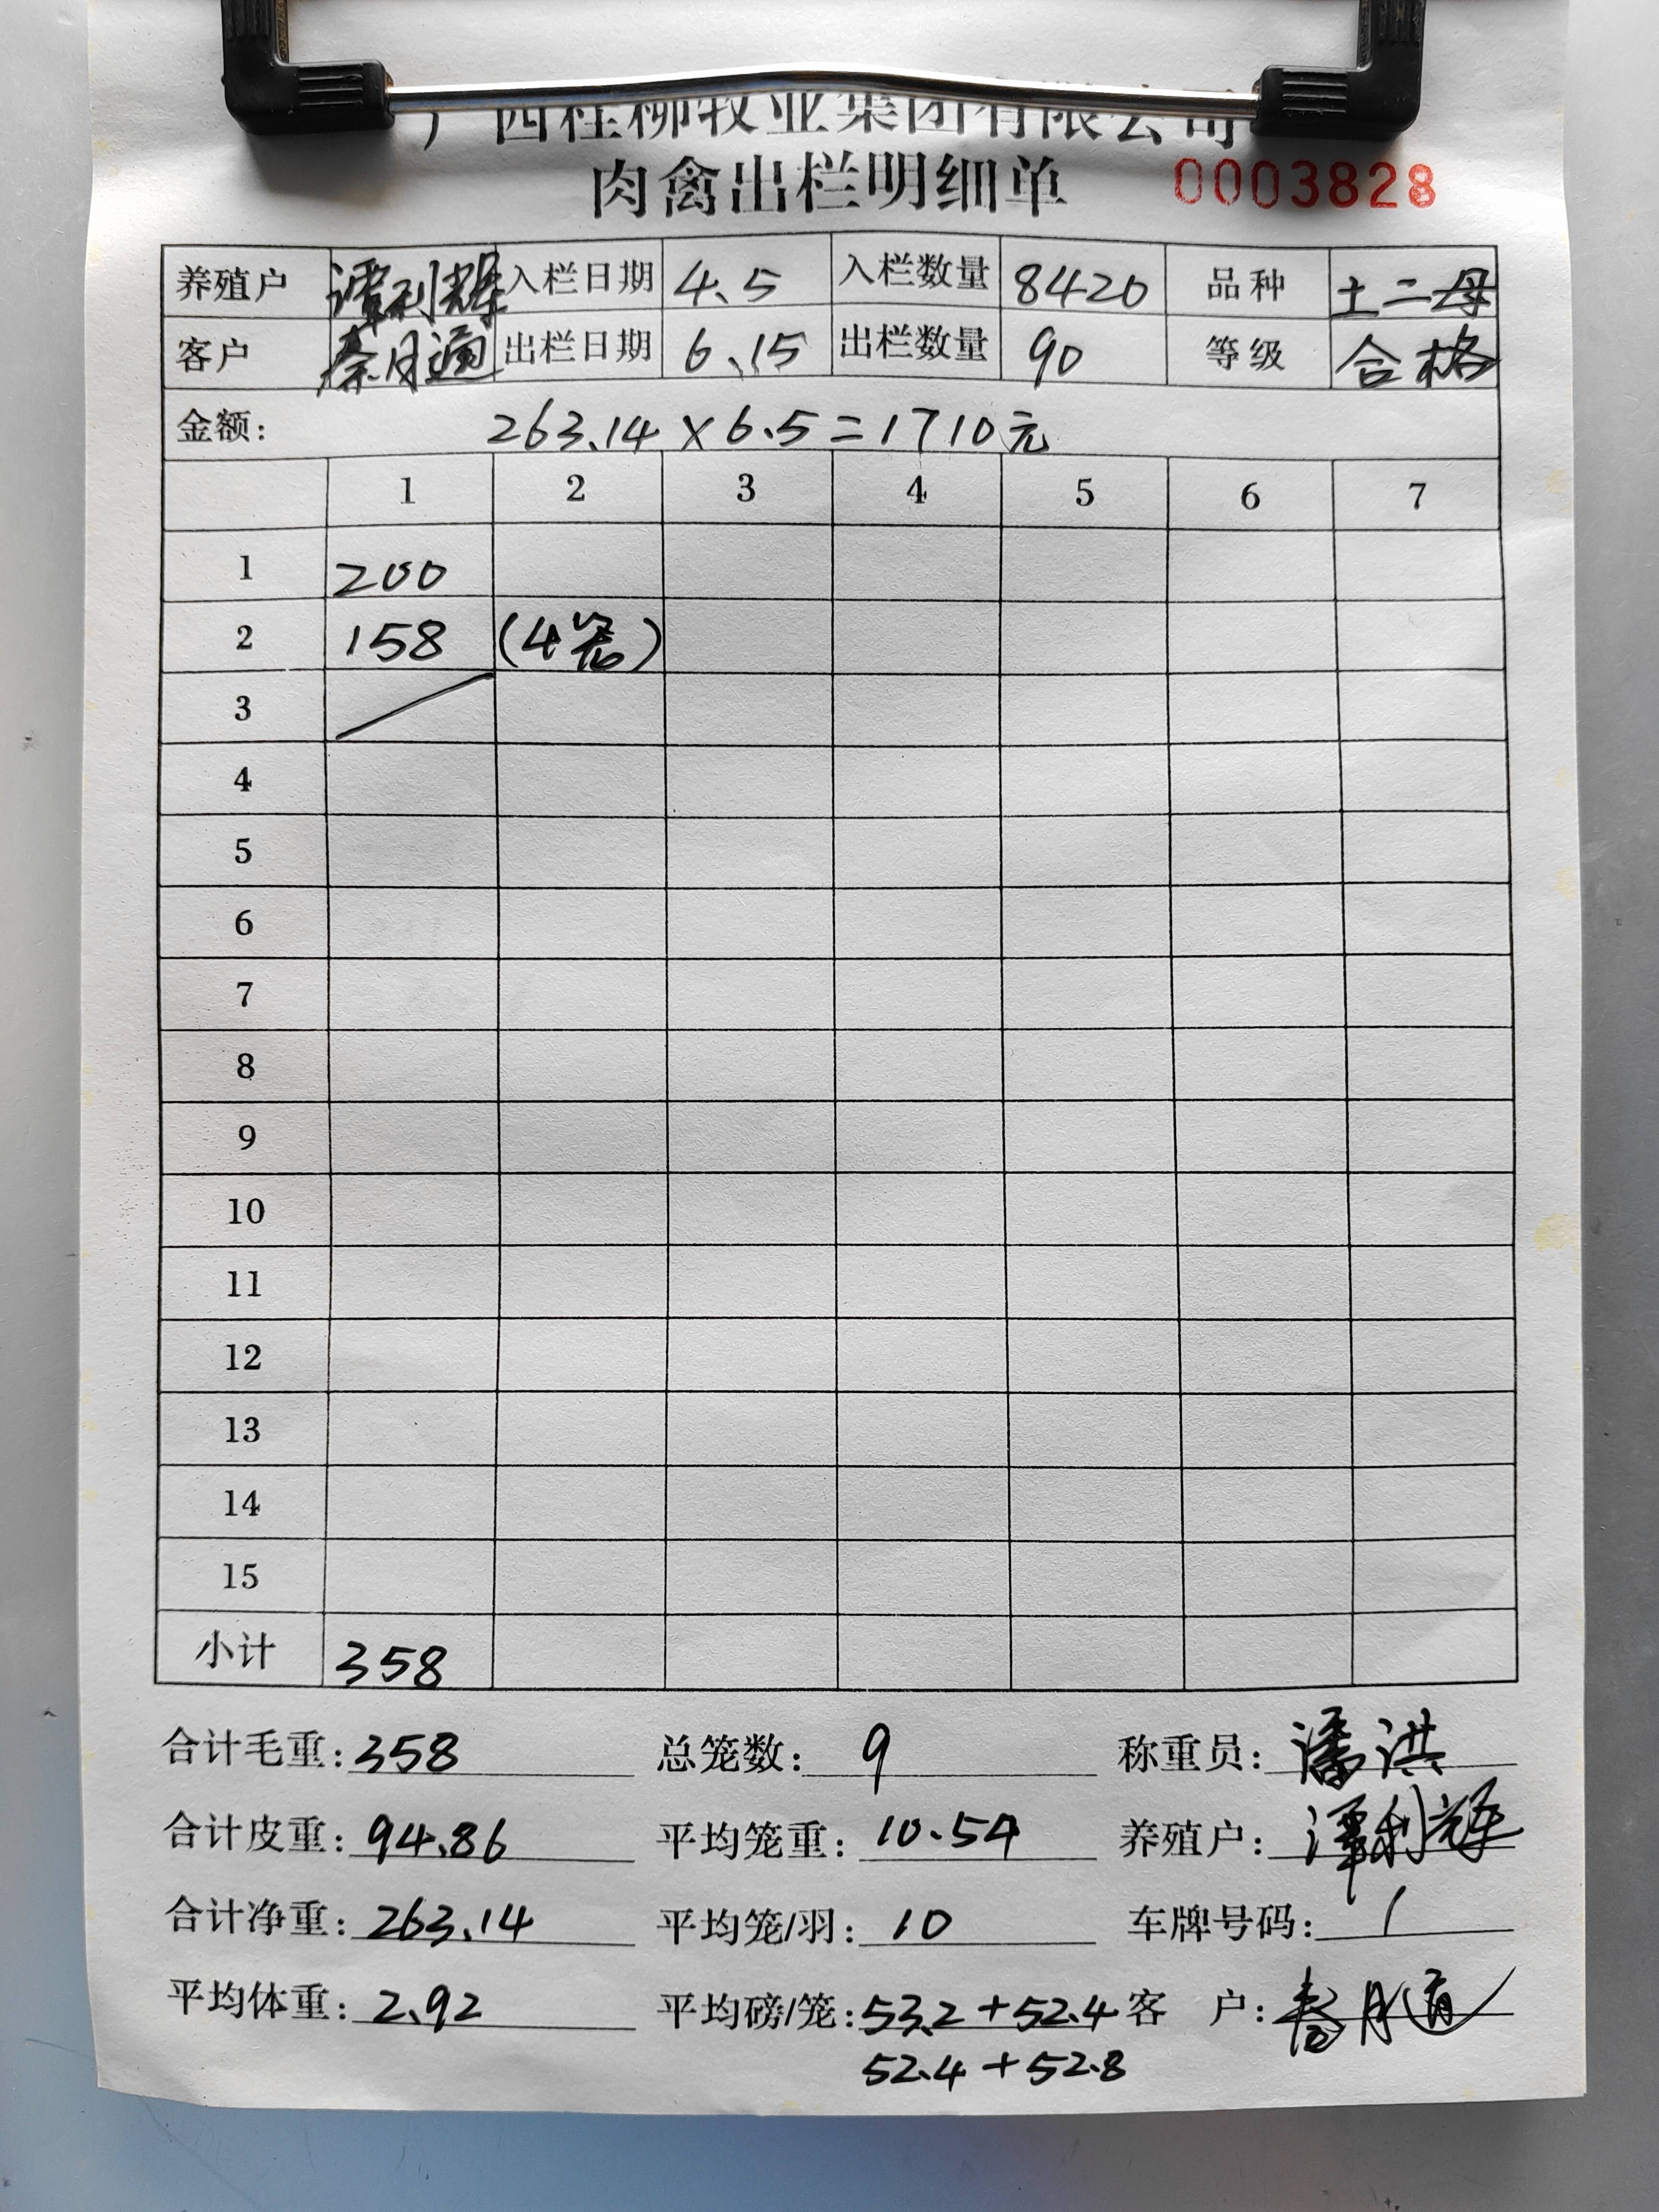 广西桂柳牧业集团有限公司
肉禽出栏明细单 0003828
养殖户 谭利辉 入栏日期 4.5 入栏数量 8420 品种 土二母
客户 秦月通 出栏日期 6.15 出栏数量 90 等级 合格
金额: 263.14×6.5=1710元
1 2 3 4 5 6 7
1 200
2 158 (4笼)
3
4
5
6
7
8
9
10
11
12
13
14
15
小计 358
合计毛重: 358 总笼数: 9 称重员: 潘洪
合计皮重: 94.86 平均笼重: 10.54 养殖户: 谭利辉
合计净重: 263.14 平均笼/羽: 10 车牌号码: /
平均体重: 2.92 平均磅/笼: 53.2+52.4 客 户: 秦月通
52.4+52.8